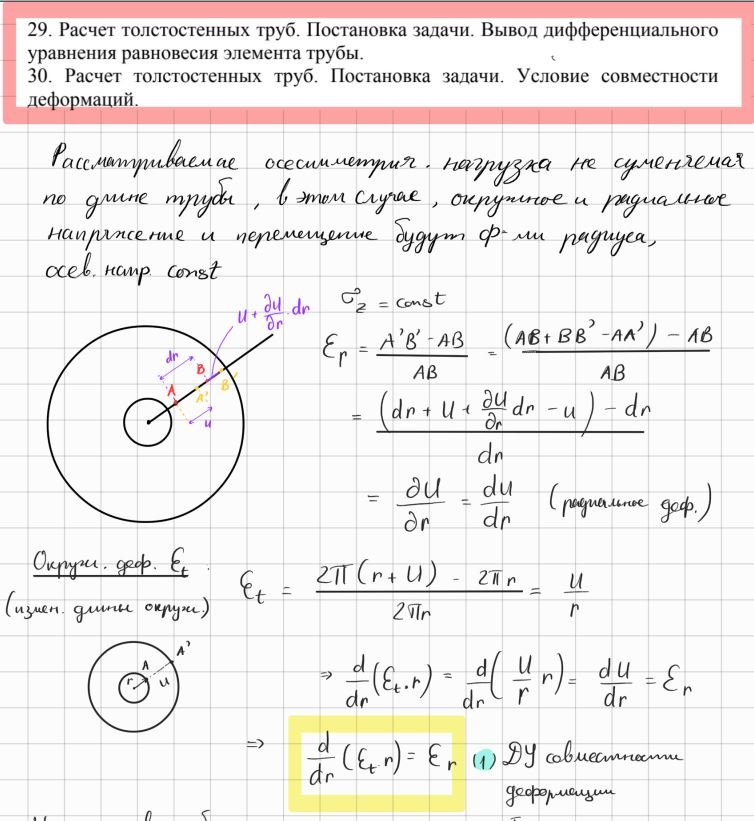 29. Расчет толстостенных труб. Постановка задачи. Вывод дифференциального
уравнения равновесия элемента трубы.
30. Расчет толстостенных труб. Постановка задачи. Условие совместности
деформаций.
Рассматриваемае осесимметрия. нагрузка не
по длине трубы, в этом случае, окружное и радиальное
напряжение и перемещение будут ф-ми радиуса,
осев. напр. const
σz = const
u + ∂u/∂r · dr
dr
B
B'
A
A'
u
εr = (A'B' - AB)/AB = ((AB + BB' - AA') - AB)/AB
= ((dr + u + ∂u/∂r dr - u) - dr)/dr
= ∂u/∂r = du/dr (радиальное деф.)
Окружн. деф. εt.
(измен. длины окружн.)
εt = (2π(r + u) - 2πr)/2πr = u/r
A
A'
r
u
⇒ d/dr (εt·r) = d/dr (u/r r) = du/dr = εr
⇒ d/dr (εt r) = εr (1) ДУ совместности
деформации